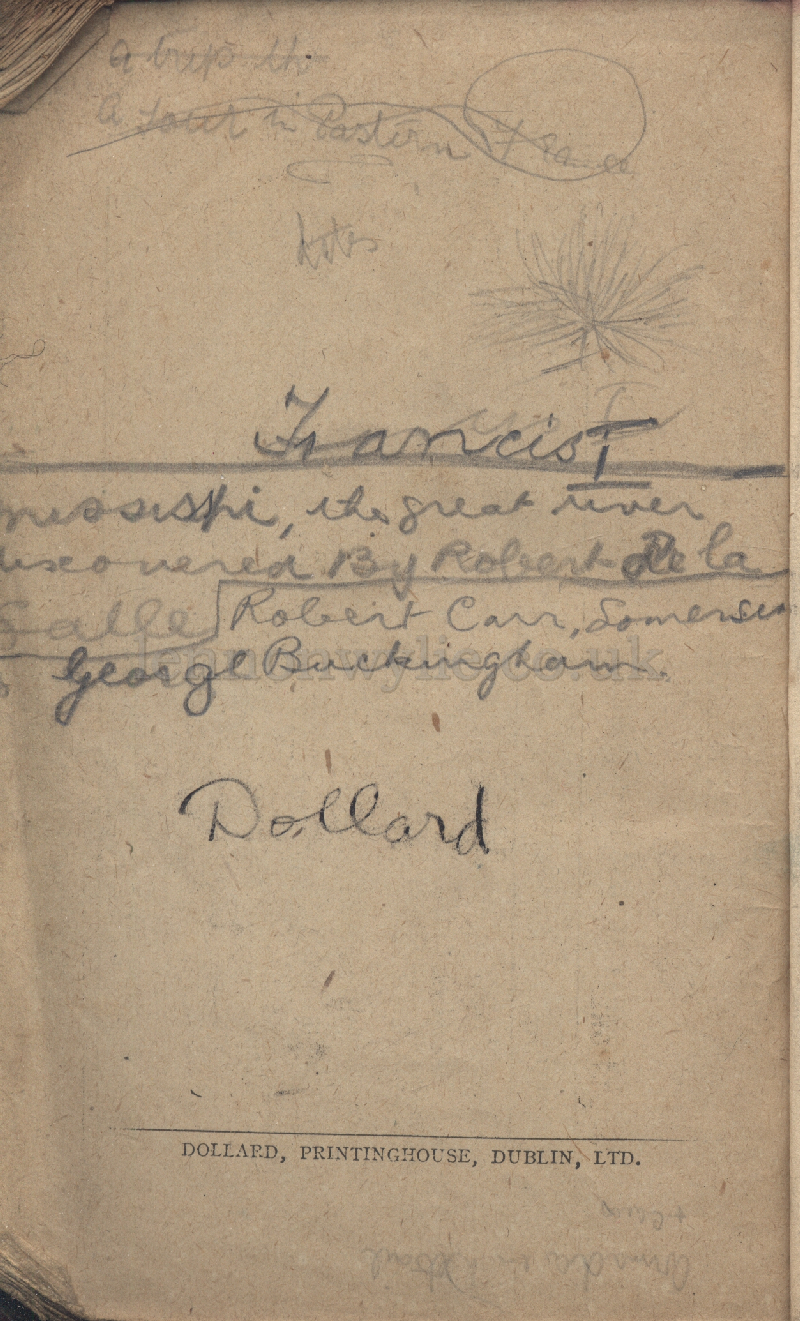 a trip th
A tour in Eastern France
Notes
Francis I
mississpi, the great river
discovered By Robert de la
Salle
Robert Carr, Somerset
George Buckingham.
lennonwylie.co.uk
Dollard
DOLLARD, PRINTINGHOUSE, DUBLIN, LTD.